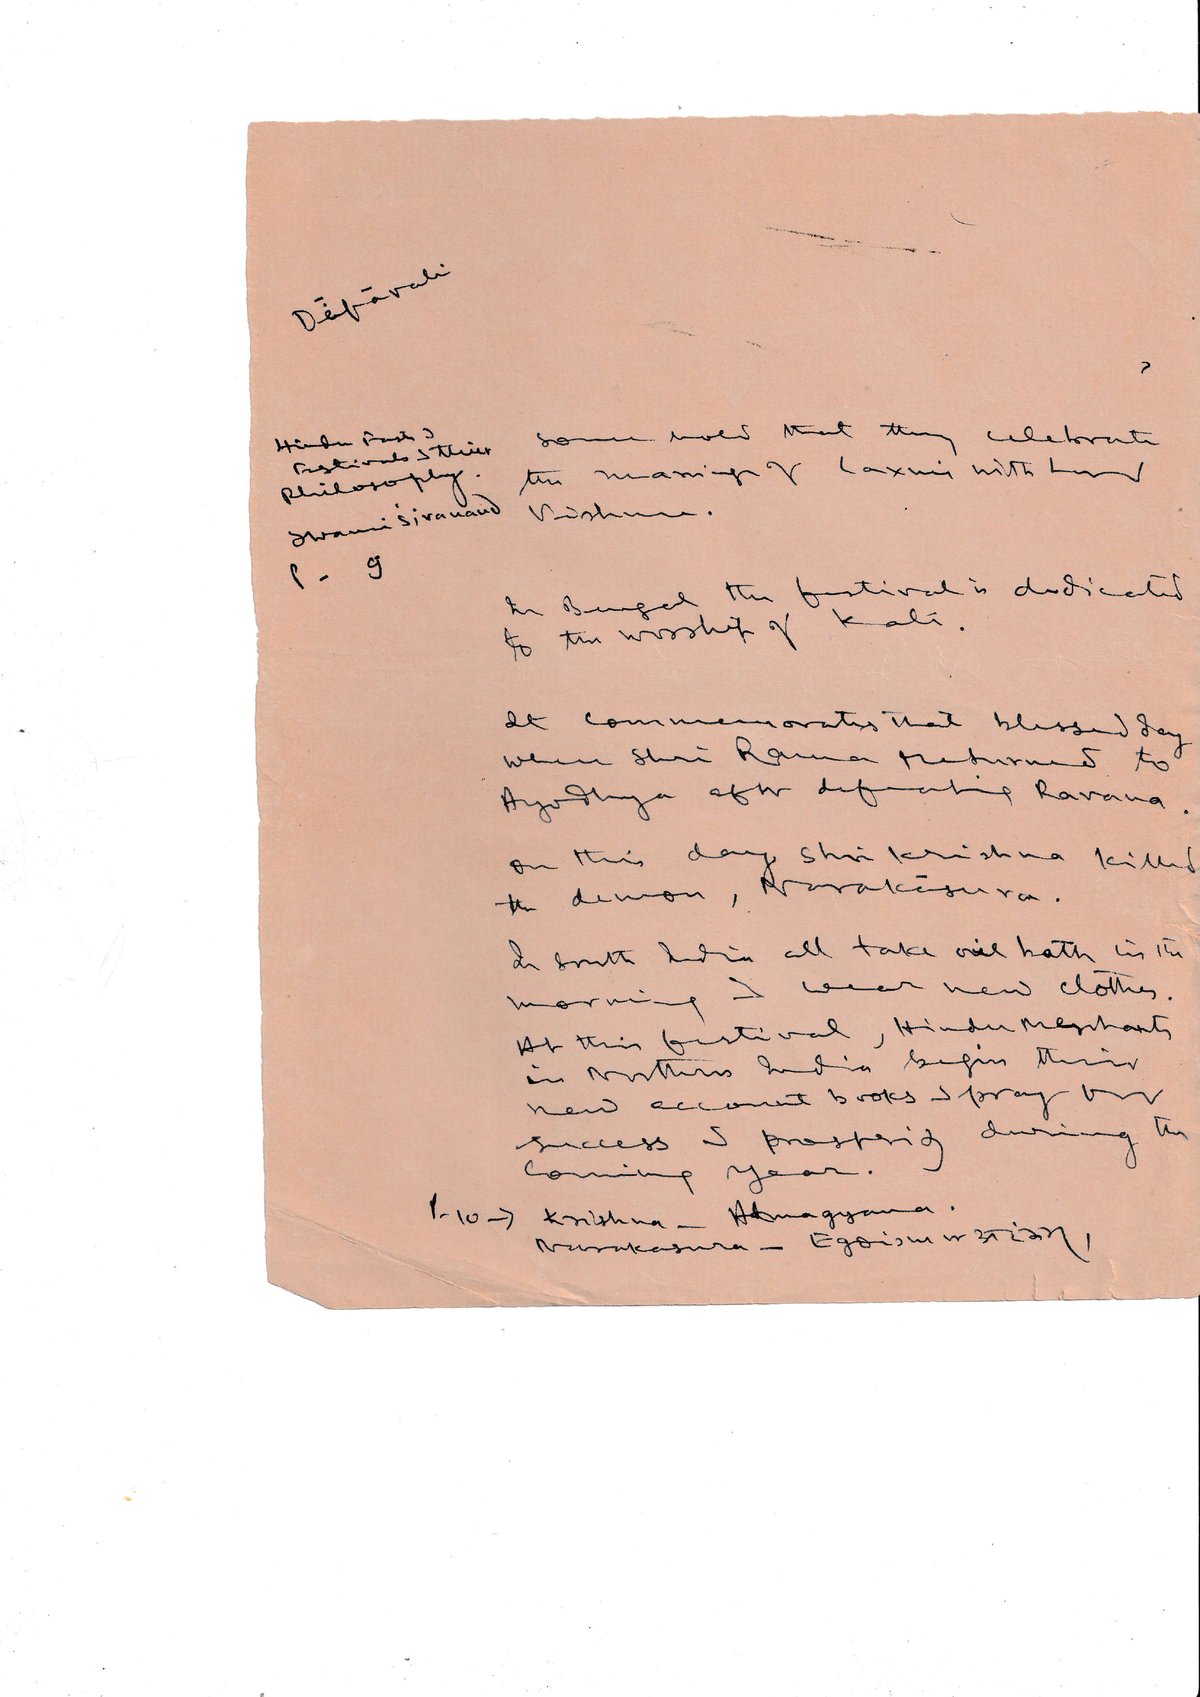 Dēpāvali
Hindu Fasts &
Festivals & their
Philosophy.
Swami Sivanand
P - 9
Some hold that they celebrate
the marriage of Laxmi with Lord
Vishnu.
In Bengal the festival is dedicated
to the worship of Kali.
It commemorates that blessed day
when Shri Rama returned to
Ayodhya after defeating Ravana.
On this day Shri Krishna killed
the demon, Narakāsura.
In South India all take oil bath in the
morning & wear new clothes.
At this festival, Hindu Merchants
in Northern India begin their
new account books & pray for
success & prosperity during the
Coming year.
P-10 → Krishna — Atmagyana.
Narakasura — Egoism or अहंकार,